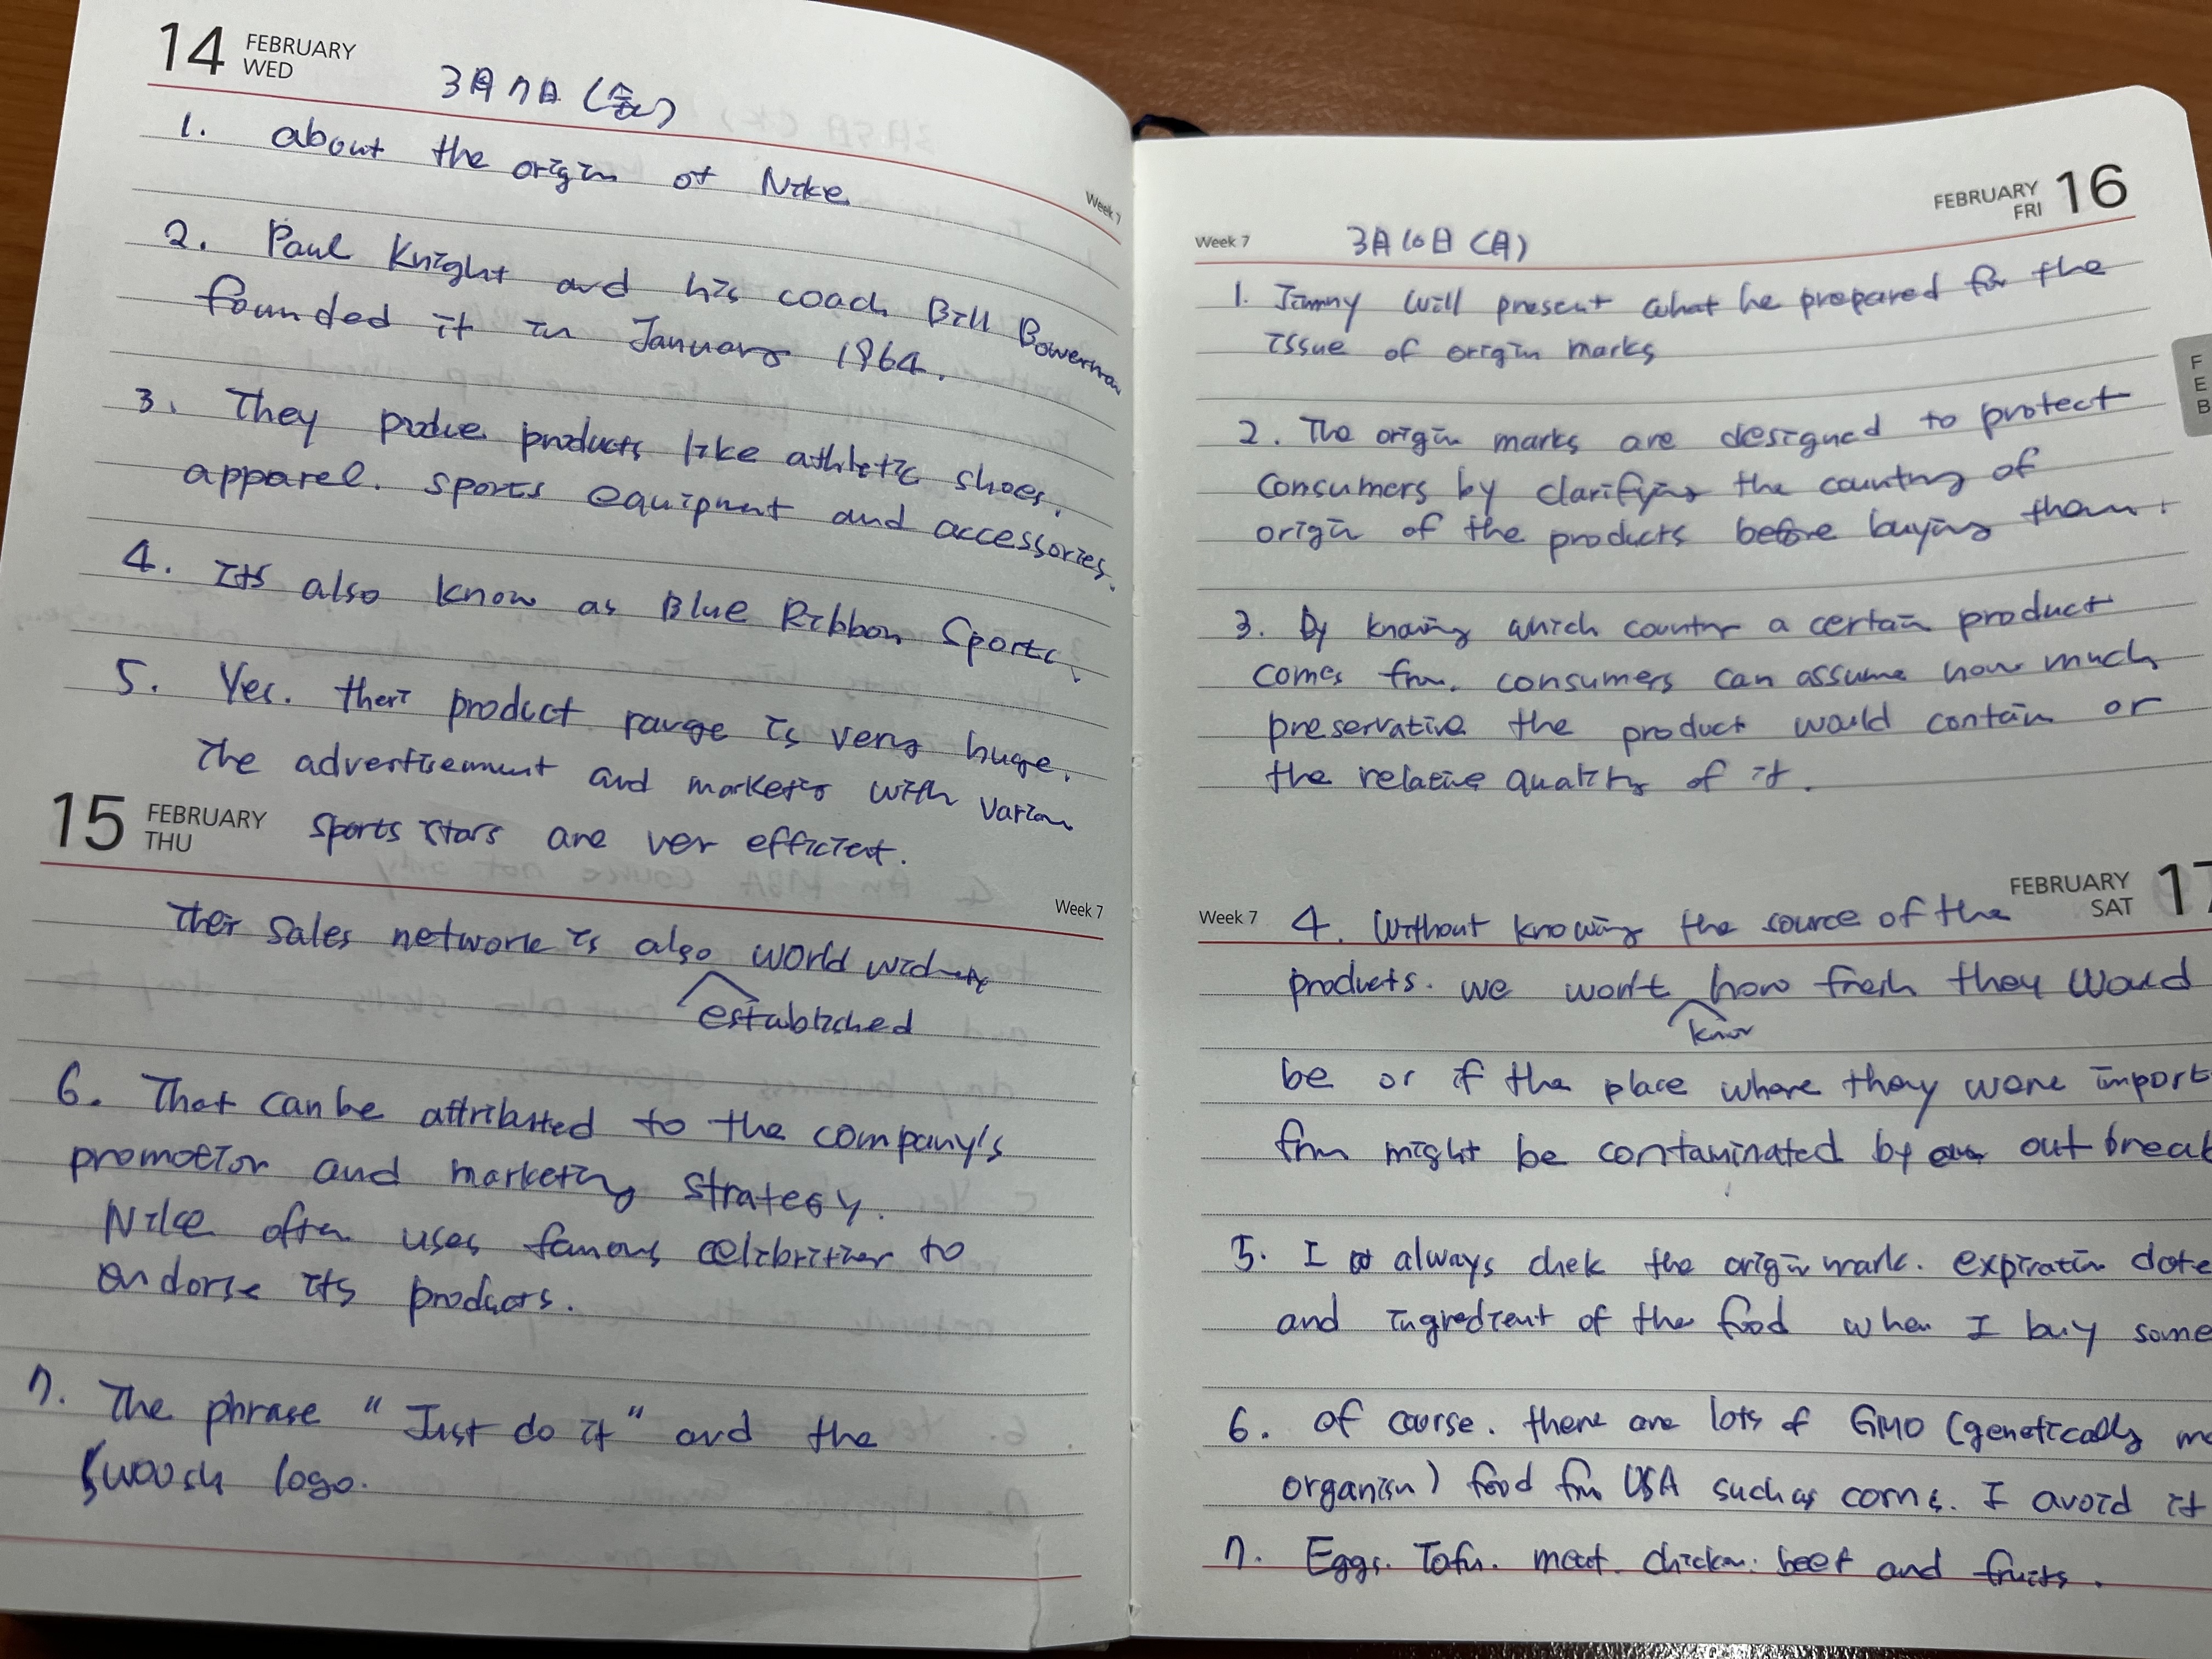 14 FEBRUARY
WED
3月7日 (金)
1. about the origin of Nike
Week 7
2. Paul Knight and his coach Bill Bowerman
founded it in January 1964.
3. They produe products like athletic shoes,
apparel. sports equipment and accessories.
4. Its also know as Blue Ribbon Sports.
5. Yes. their product range is very huge.
The advertisement and marketing with various
15 FEBRUARY
THU
sports stars are ver efficient.
Week 7
Their sales network is also world wide
established
6. That can be attributed to the company's
promotion and marketing strategy.
Nike often uses famous celibrities to
endorse its products.
7. The phrase "Just do it" and the
Swoosh logo.
FEBRUARY 16
FRI
Week 7
3月10日 (月)
1. Jimmy will present what he prepared for the
issue of origin marks
FEB
2. The origin marks are designed to protect
consumers by clarifying the country of
origin of the products before buying them.
3. By knowing which country a certain product
comes from. consumers can assume how much
preservative the product would contain or
the relative quality of it.
FEBRUARY 17
SAT
Week 7
4. Without knowing the source of the
products. we won't how fresh they would
know
be or if the place where they were import
from might be contaminated by out break
5. I always chek the origin mark. expiration date
and ingredient of the food when I buy some
6. Of course. there are lots of GMO (genetically mo
organism) food from USA such as corns. I avoid it
7. Eggs. Tofu. meat. chicken. beef and fruits.